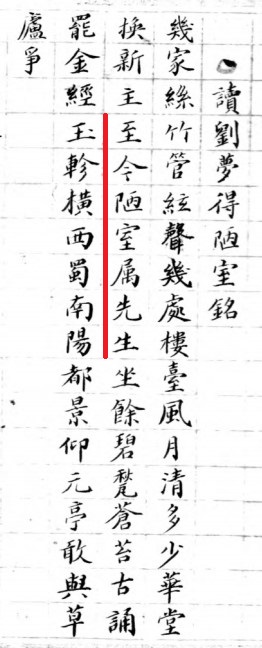 讀劉夢得陋室銘
幾家絲竹管絃聲幾處樓臺風月清多少華堂
換新主至今陋室属先生坐餘碧甃蒼苔古誦
罷金經玉軫橫西蜀南陽都景仰元亭敢與草
廬爭